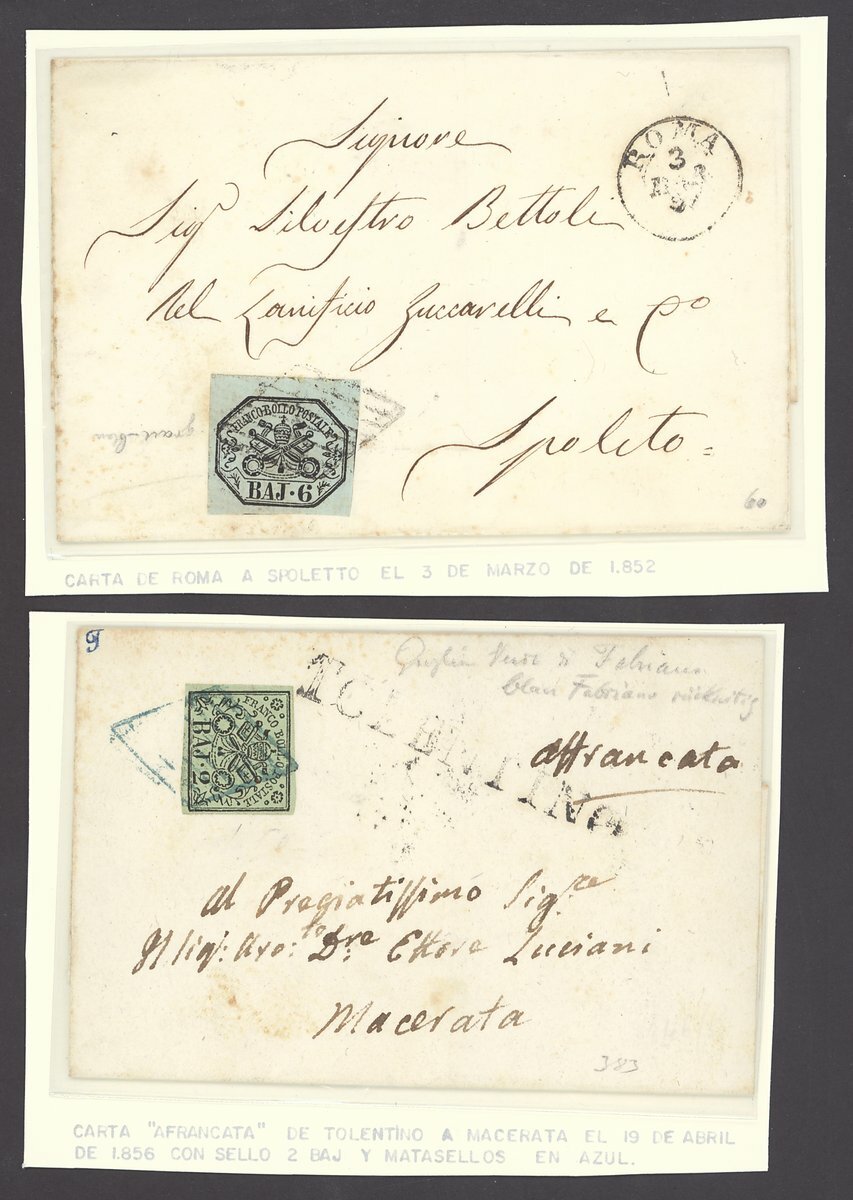 Signore
Sigr Silvestro Bettoli
Del Lanificio Zuccarelli e Co
Spoleto =
ROMA
3
FRANCO-BOLLO POSTALE
BAJ·6
60
CARTA DE ROMA A SPOLETTO EL 3 DE MARZO DE 1.852
FRANCO BOLLO POSTALE
BAJ·2
TOLENTINO
Verde di Fabriano
blau Fabriano rückseitig
affrancata
Al Pregiatissimo Sig.re
Il Sig: Avv:to Dre Ettore Luciani
Macerata
383
CARTA "AFRANCATA" DE TOLENTINO A MACERATA EL 19 DE ABRIL
DE 1.856 CON SELLO 2 BAJ Y MATASELLOS EN AZUL.